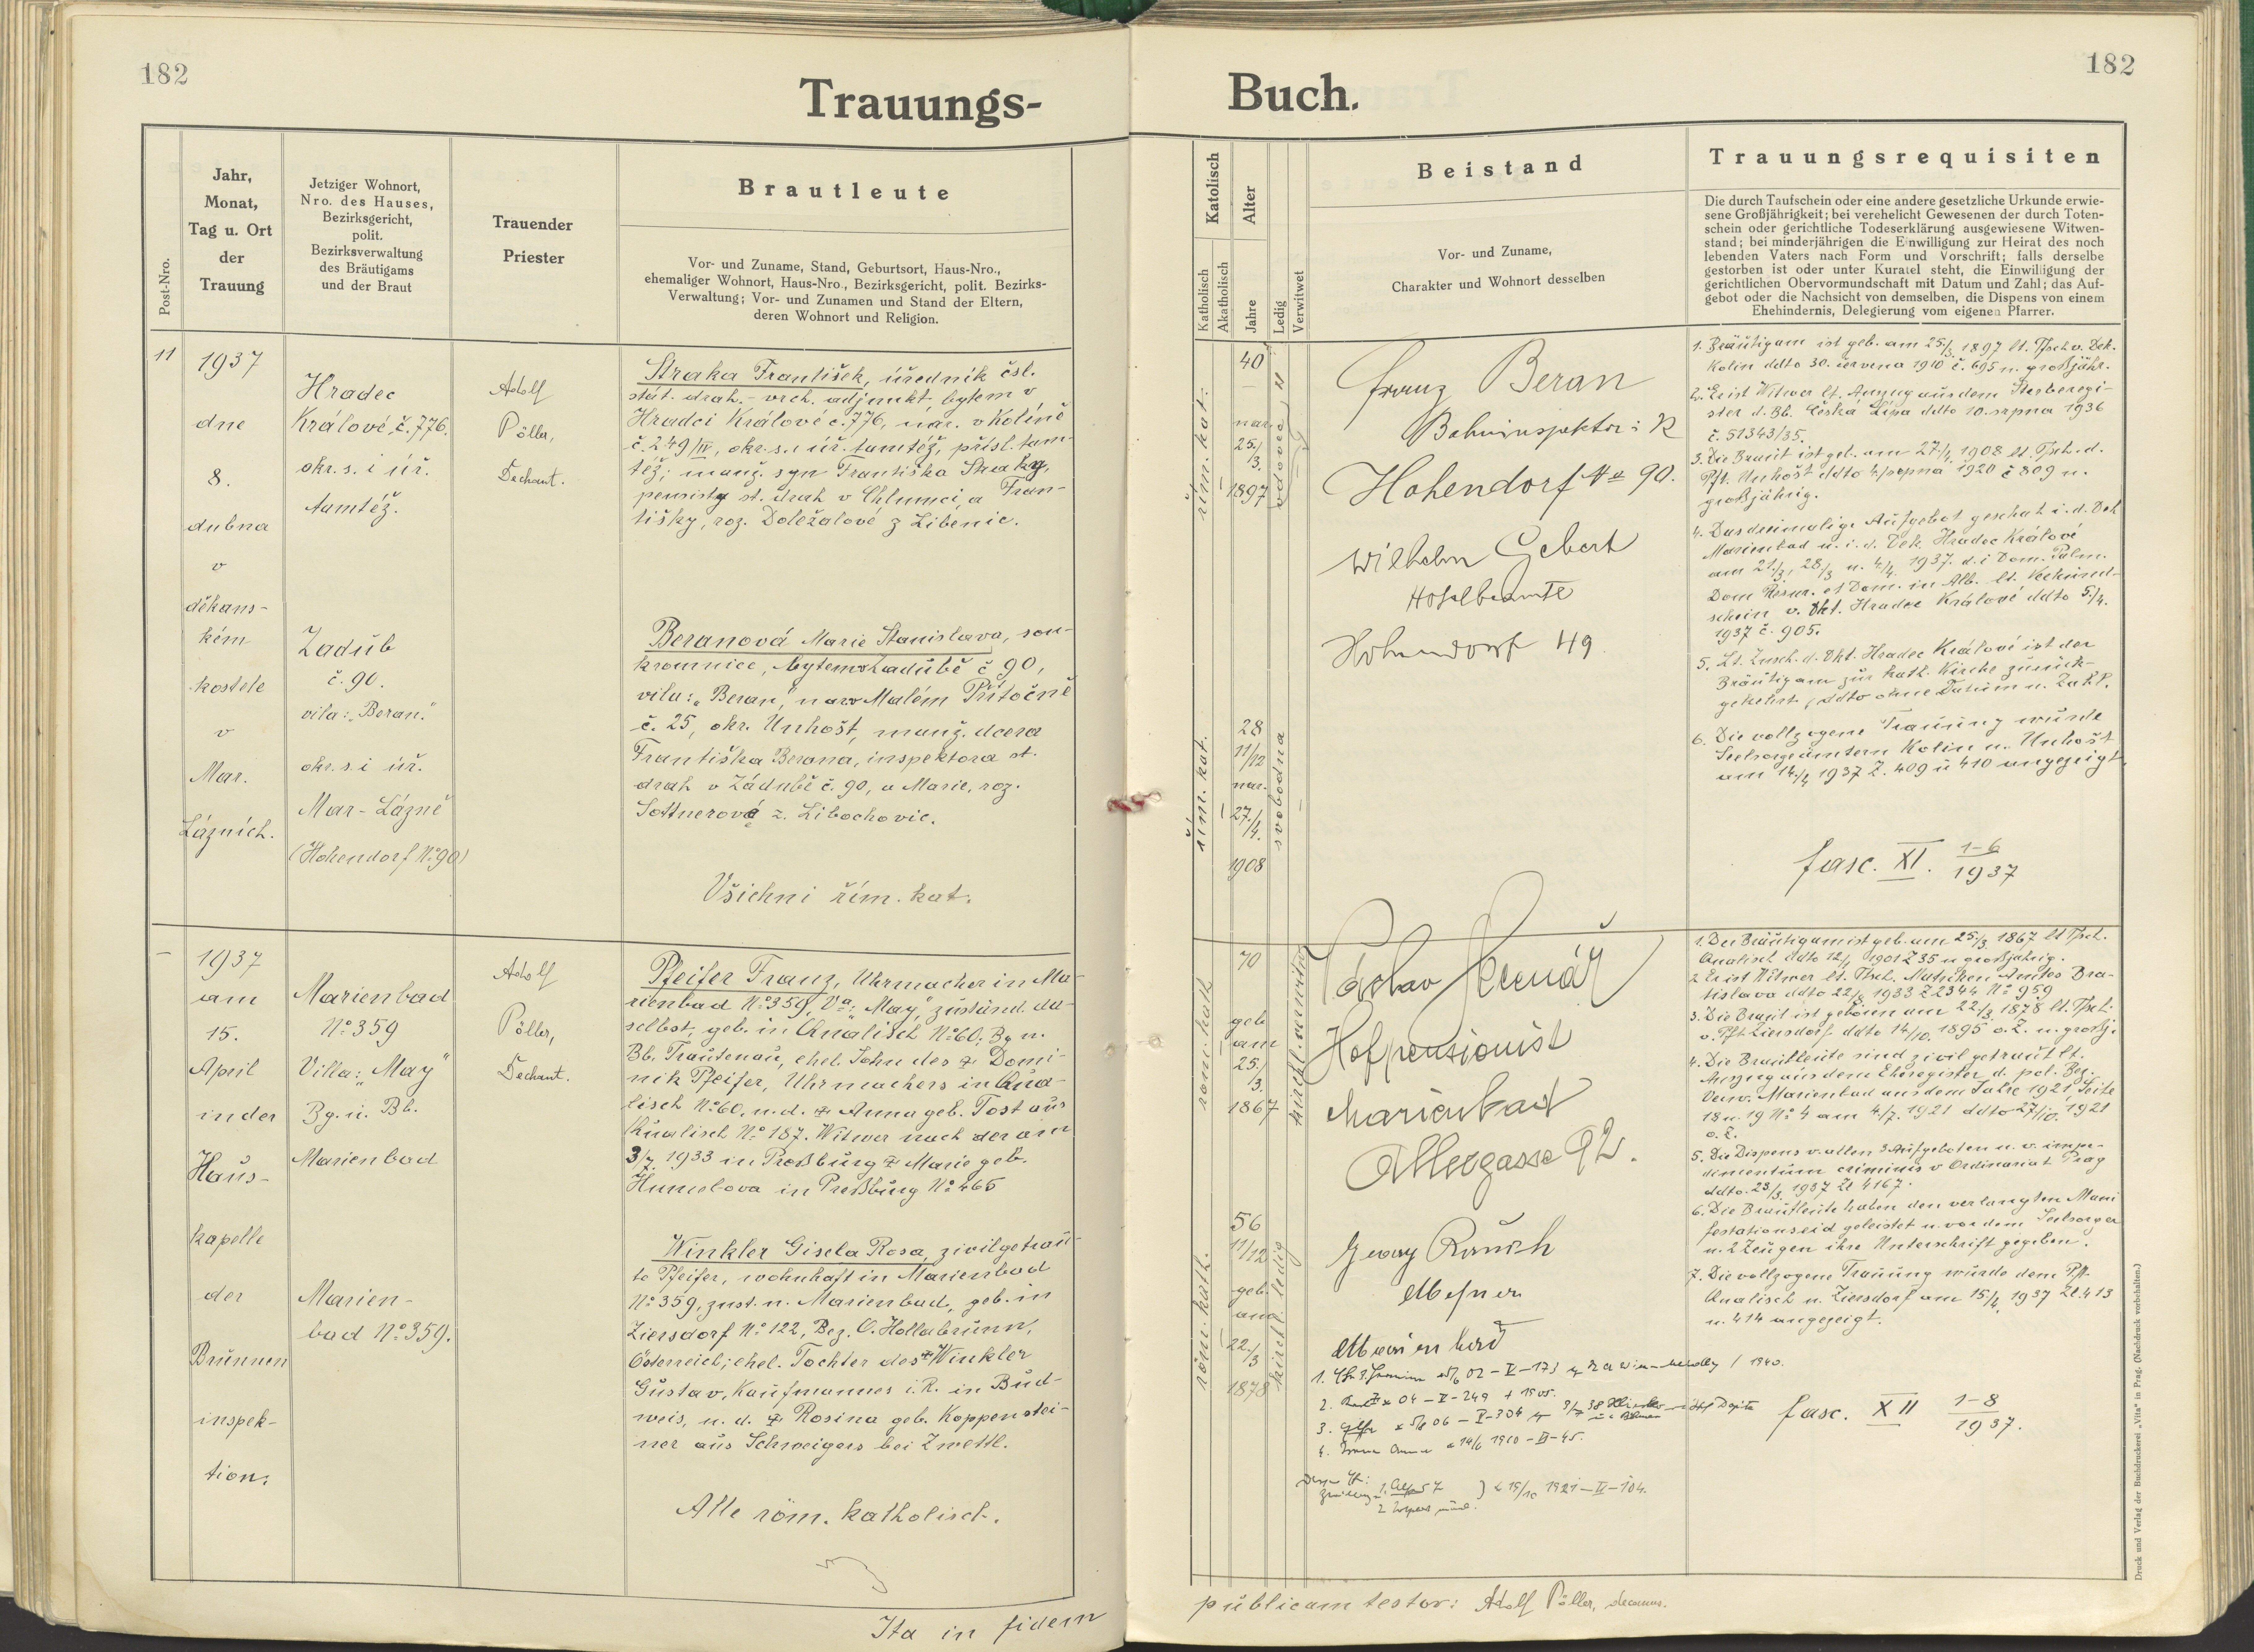 182
Trauungs-
Post-Nro.
Jahr,
Monat,
Tag u. Ort
der
Trauung
Jetziger Wohnort,
Nro. des Hauses,
Bezirksgericht,
polit.
Bezirksverwaltung
des Bräutigams
und der Braut
Trauender
Priester
Brautleute
Vor- und Zuname, Stand, Geburtsort, Haus-Nro.,
ehemaliger Wohnort, Haus-Nro., Bezirksgericht, polit. Bezirks-
Verwaltung; Vor- und Zunamen und Stand der Eltern,
deren Wohnort und Religion.
11
1937
dne
8.
dubna
v
děkans-
kém
kostele
v
Mar.
Lázních.
Hradec
Králové, č. 776.
okr. s. i úř.
tamtéž.
Adolf
Pöller,
Dechant.
Straka František, úředník čsl.
stát. drah. - vrch. adjunkt, bytem v
Hradci Králové č. 776, nar. v Kolíně
č. 249/IV, okr. s. i úř. tamtéž, přísl. tam-
též; manž. syn Františka Straky,
pensisty st. drah v Chlumci, a Fran-
tišky, roz. Doležalové z Libenic.
Zadub
č. 90.
vila: „Beran."
okr. s. i úř.
Mar-Lázně
(Hohendorf No 90)
Beranová Marie Stanislava, sou-
kromnice, bytem v Zádubě č 90,
vila: „Beran", nar. v Malém Přítočně
č. 25, okr. Unhošt, manž. dcera
Františka Berana, inspektora st.
drah v Zádubě č. 90, a Marie, roz.
Sottnerové z. Libochovic.
Všichni řím. kat.
–
1937
am
15.
April
in der
Haus-
kapelle
der
Brunnen
inspek-
tion.
Marienbad
No 359
Villa: „May"
Bg. u. Bb.
Marienbad
Adolf
Pöller,
Dechant.
Pfeifer Franz, Uhrmacher in Ma-
rienbad No 359, Va: „May", zuständ. da-
selbst, geb. in Qualisch No 60, Bg u.
Bb. Trautenau, ehel. Sohn des Domi-
nik Pfeifer, Uhrmachers in Qua-
lisch No 60, u. d. Anna geb. Tost aus
Qualisch No 187. Witwer nach der am
3/7. 1933 in Preßburg Marie geb.
Humelova in Preßburg No 465
Marien-
bad No 359.
Winkler Gisela Rosa, zivilgetrau-
te Pfeifer, wohnhaft in Marienbad
No 359, zust. n. Marienbad, geb. in
Ziersdorf No 122, Bez. O. Hollabrunn,
Österreich; ehel. Tochter des Winkler
Gustav, Kaufmannes i. R. in Bud-
weis, u. d. Rosina geb. Koppenstei-
ner aus Schweigers bei Zwettl.
Alle röm. katholisch.
Ita in fidem
182
Buch.
Katolisch
Katholisch
Akatholisch
Alter
Jahre
Ledig
Verwitwet
Beistand
Vor- und Zuname,
Charakter und Wohnort desselben
Trauungsrequisiten
Die durch Taufschein oder eine andere gesetzliche Urkunde erwie-
sene Großjährigkeit; bei verehelicht Gewesenen der durch Toten-
schein oder gerichtliche Todeserklärung ausgewiesene Witwen-
stand; bei minderjährigen die Einwilligung zur Heirat des noch
lebenden Vaters nach Form und Vorschrift; falls derselbe
gestorben ist oder unter Kuratel steht, die Einwilligung der
gerichtlichen Obervormundschaft mit Datum und Zahl; das Auf-
gebot oder die Nachsicht von demselben, die Dispens von einem
Ehehindernis, Delegierung vom eigenen Pfarrer.
řím. kat.
40
nar.
25./
3.
1897
vdovec
Franz Beran
Bahninspektor i R
Hohendorf No 90.
Wilhelm Gebert
Hotelbeamte
Hohendorf 49
1. Bräutigam ist geb. am 25./3. 1897 lt. Tfsch v. Dek.
Kolin ddto 30. června 1910 č. 695 u. großjähr.
2. Er ist Witwer lt. Auszug aus dem Sterberegi-
ster d. Bb. Česká Lípa ddto 10. srpna 1936
č. 51343/35.
3. Die Braut ist geb. am 27./4. 1908 lt. Tfsch. d.
Pft. Unhošt ddto 4/srpna 1920 č 809 u.
großjährig.
4. Das dreimalige Aufgebot geschah i. d. Dek
Marienbad u. i. d. Dek. Hradec Králové
am 21./3., 28/3 u. 4/4. 1937. d. i Dom. Palm.
Dom Resur. et Dom. in Alb. lt. Verkünd-
schein v. Dkt. Hradec Králové ddto 5./4.
1937 č. 905.
5. Lt. Zusch. d. Dkt. Hradec Králové ist der
Bräutigam zur kath. Kirche zurück-
gekehrt, ddto ohne Datum u. Zahl.
6. Die vollzogene Trauung wurde
Seelsorgeämtern Kolin u. Unhošt
am 14./4 1937 Z. 409 u 410 angezeigt.
řím. kat.
28
11/12
nar.
27./
4.
1908
svobodna
fasc. XI. 1-6
1937
röm. kath
70
geb
am
25./
3.
1867
kirchl. verwitw
Václav
Hofpensionist
Marienbad
Allergasse 92.
1. Der Bräutigam ist geb. am 25./3. 1867 lt Tfsch.
Qualisch ddto 12/1 1901 Z 35 u großjährig.
2 Er ist Witwer lt. Tfsch. Matriken Amtes Bra-
tislava ddto 22/8 1933 Z 2344 No 959
3. Die Braut ist geboren am 22/3. 1878 lt. Tfsch.
v. Pft Ziersdorf ddto 14/10. 1895 o. Z. u. großj.
4. Die Brautleute sind zivil getraut lt.
Auszug aus dem Eheregister d. pol. Bez.
Verw. Marienbad aus dem Jahre 1921, Seite
18 u. 19 No 4 am 4./7. 1921 ddto 27/10. 1921
o. Z.
5. Die Dispens v. allen 3 Aufgeboten u. v. impe-
dimentum criminis v Ordinariat Prag
ddto. 23/3. 1937 Zl 4167.
6. Die Brautleute haben den verlangten Mani
festationseid geleistet u. vor dem Seelsorger
u. 2 Zeugen ihre Unterschrift gegeben.
7. Die vollzogene Trauung wurde dem Pft.
Qualisch u. Ziersdorf am 15/4. 1937 Zl. 413
u. 414 angezeigt.
röm. kath.
56
11/12
geb.
am
22./
3
1878
kirchl. ledig
Georg Rausch
Meßner
Marienbad
1940.
04 – V – 249 + 1905.
06 – V – 304
4. Anna 14/6 1910 – 45.
15/10 1921 – 104.
fasc. XII 1–8
1937.
Druck und Verlag der Buchdruckerei „Vita" in Prag. (Nachdruck vorbehalten.)
publicam testor: Adolf Pöller, decanus.